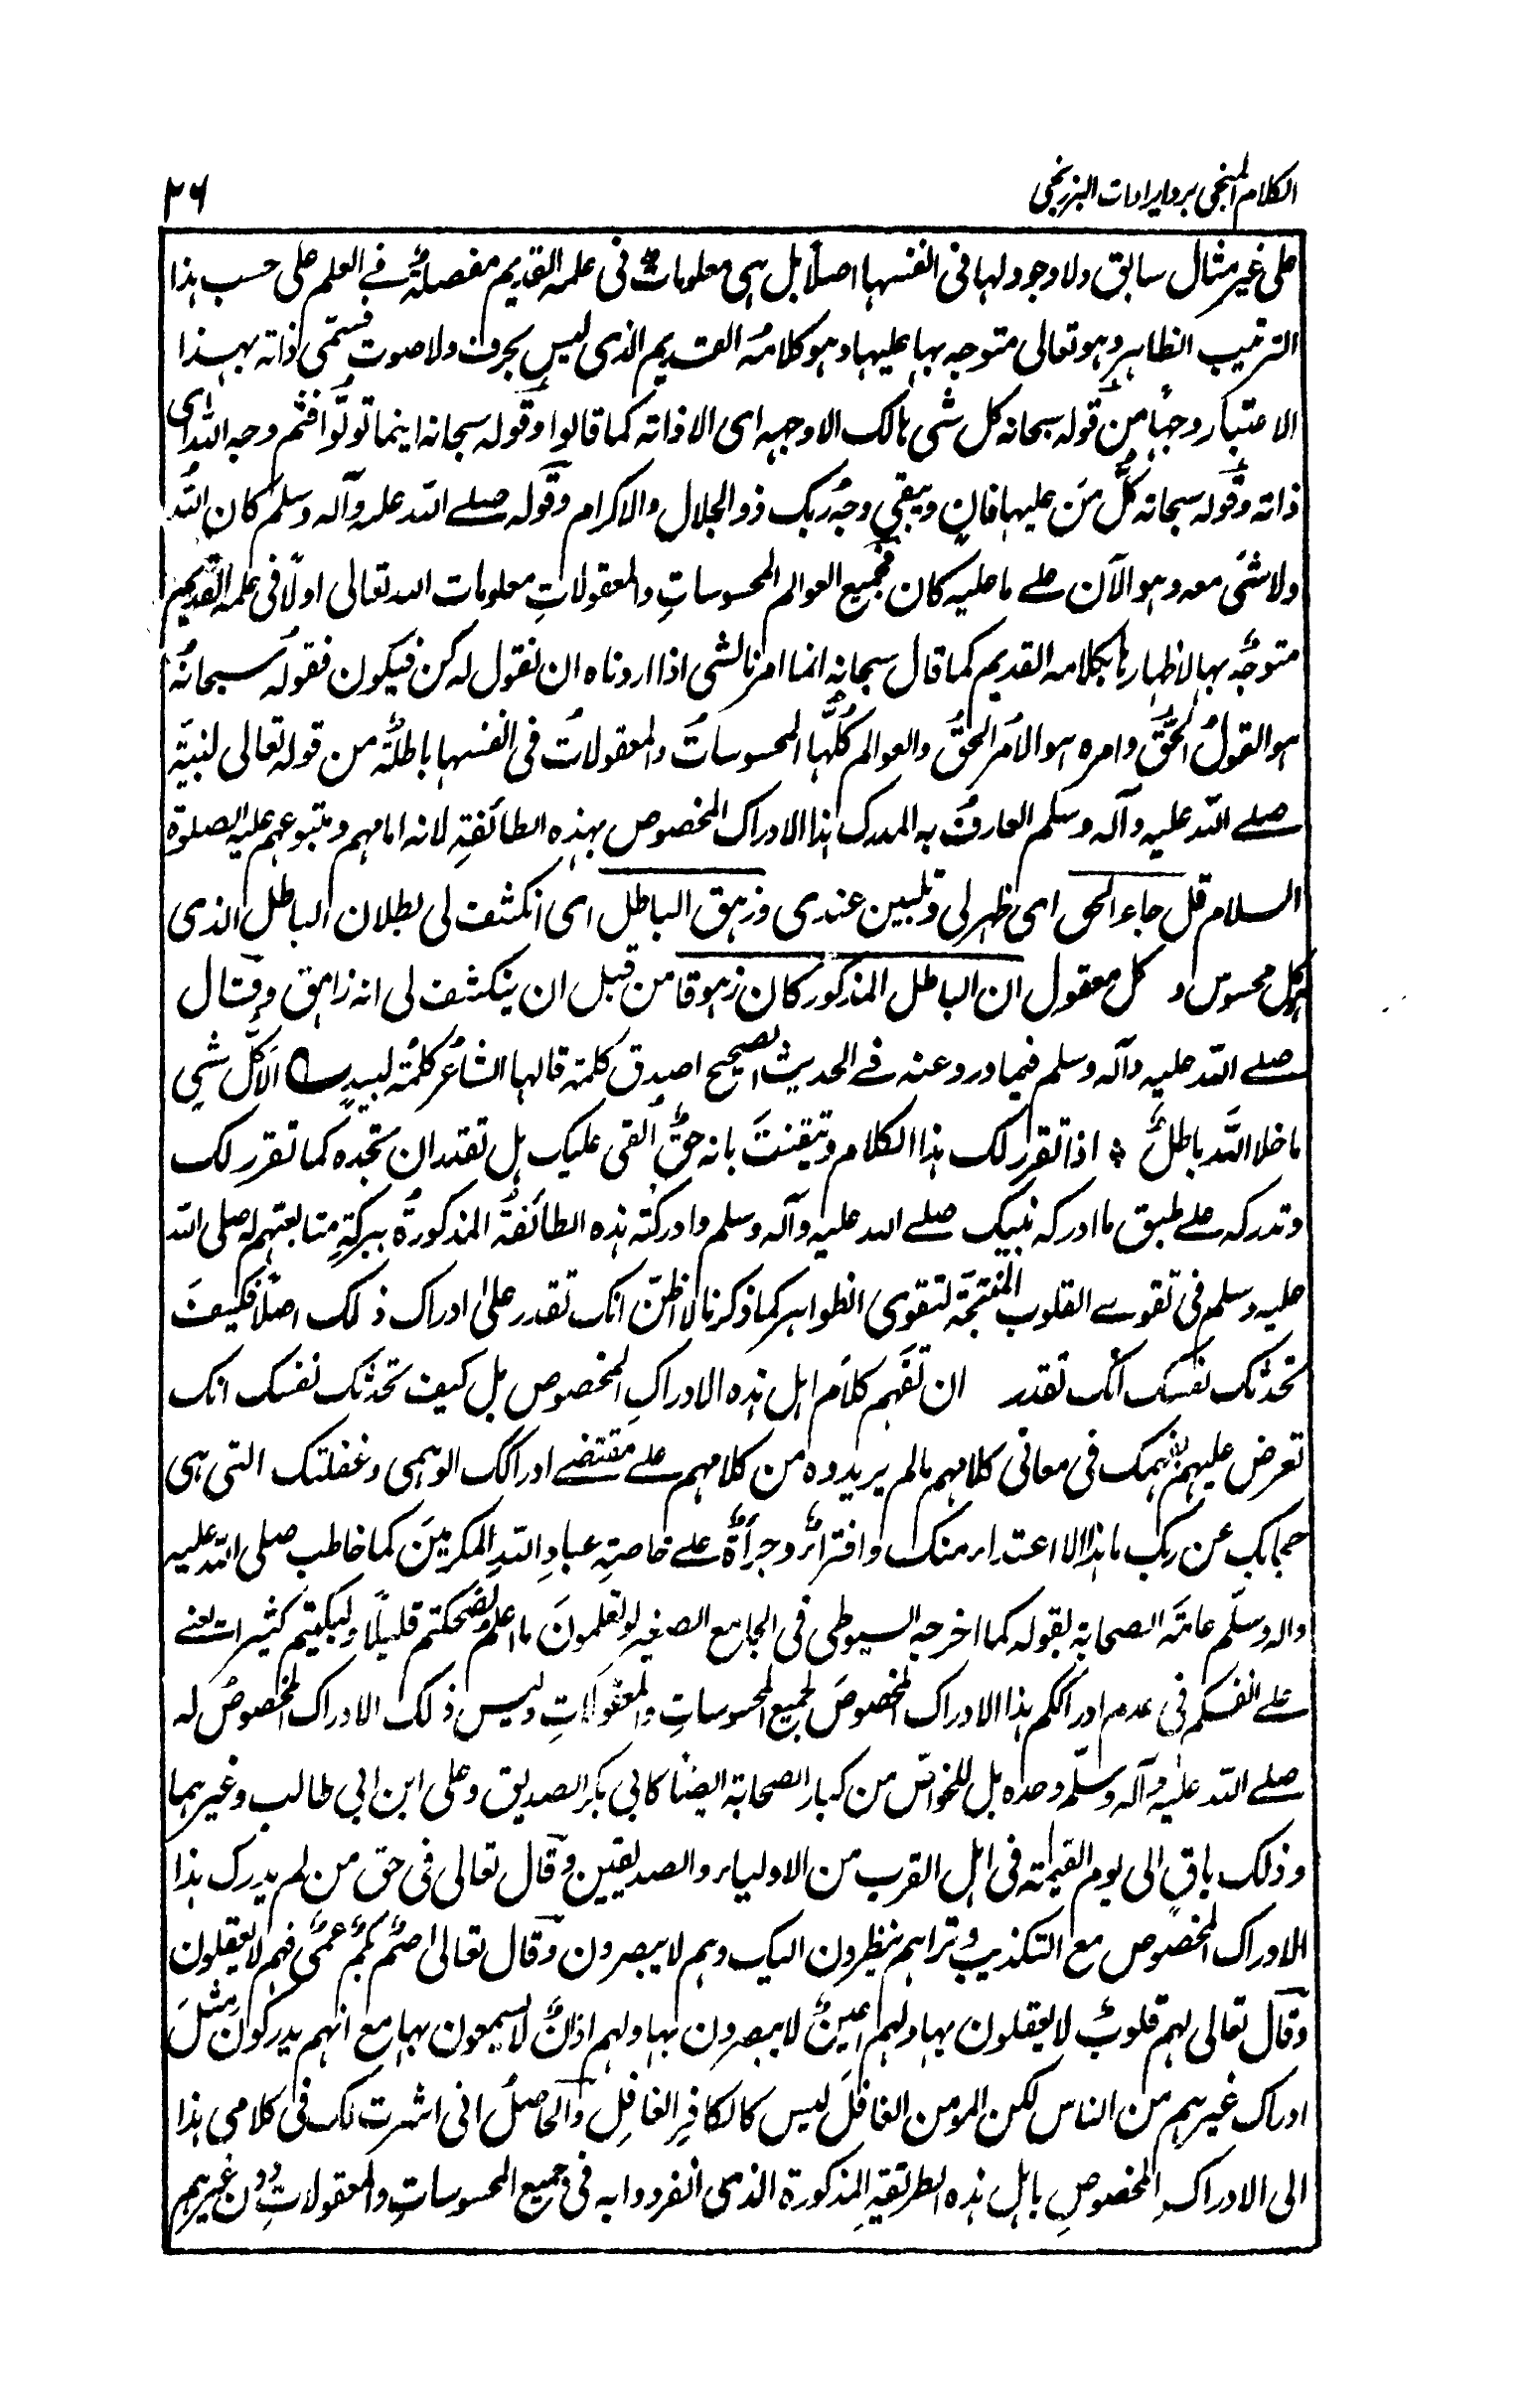 الكلام المنجى برد ايرادات البرزنجى
٢٦
على غير مثال سابق ولا وجود لها فى انفسها اصلًا بل هى معلوماتٌ فى علمه القديم مفصلةٌ فے العلم على حسب هذا
الترتيب الظاهر وهو تعالى متوجه بها عليها وهو كلامُه القديم الذى ليس بحرف ولا صوت فسمّى ذاته بهذا
الاعتبار وجهًا من قوله سبحانه كل شى هالك الا وجهه اى الا ذاته كما قالوا وقوله سبحانه اينما تولّوا فثم وجه الله اى
ذاته وقوله سبحانه كلُّ مَن عليها فانٍ ويبقى وجهُ ربك ذو الجلال والاكرام وقوله صلے الله عليه وآله وسلم كان الله
ولا شئى معه وهو الآن علے ما عليه كان فجميع العوالم المحسوساتِ والمعقولاتِ معلومات الله تعالى اولًا فى علمه القديم
متوجّه بها لاظهارها بكلامه القديم كما قال سبحانه انما امرنا لشى اذا اردناه ان نقول له كن فيكون فقوله سبحانهُ
هو القولُ الحقُّ وامره هو الامر الحقُّ والعوالم كلُّها المحسوساتُ والمعقولاتُ فى انفسها باطلةٌ من قوله تعالى لنبيّه
صلے الله عليه وآله وسلم العارفُ به المدرك هذا الادراك المخصوص بهذه الطائفةِ لانه امامهم ومتبوعهم عليه الصلوة
السلام قل جاء الحق اى ظهر لى وتبين عندى وزهق الباطل اى انكشف لى بطلان الباطل الذى
هو كل محسوس و كل معقول ان الباطل المذكور كان زهوقا من قبل ان ينكشف لى انه زاهق وقال
صلے الله عليه وآله وسلم فيما ورد عنه فے الحديث الصحيح اصدق كلمة قالها الشاعر كلمة لبيدٍ الا كلّ شي
ما خلا الله باطلٌ ؞ اذا تقرر لك هذا الكلام وتيقنتَ بانه حقٌّ اُلقى عليك هل تقتدر ان تجده كما تقرر لك
وتدركه علے طبق ما ادركه نبيك صلے الله عليه وآله وسلم وادركته هذه الطائفةُ المذكورةُ ببركةِ متابعتهم له صلى الله
عليه وسلم فى تقوے القلوب المنتجة لتقوى الظواهر كما ذكرنا لا اظنّ انك تقدر علىٰ ادراك ذلك اصلًا فكيفَ
تحدثك نفسك انك تقدر ان تفهم كلامَ اهل هذه الادراكِ المخصوص بل كيف تحدثك نفسك انك
تعرض عليهم بفهمك فى معانى كلامهم ما لم يريدوه من كلامهم علے مقتضے ادراكك الوهمى وغفلتك التى هى
حجابك عن ربك ما هذا الا اعتداء منك وافتراءٌ وجرأةٌ علے خاصةِ عبادِ اللهِ المكرمينَ كما خاطب صلى الله عليه
واله وسلّم عامّة الصحابة بقوله كما اخرجه السيوطى فى الجامع الصغير لو تعلمونَ ما اعلم لضحكتم قليلًا ولبكيتم كثيرا يعنے
علے انفسكم فى عدم ادراككم هذا الادراك المخصوصَ لجميع المحسوساتِ والمعقولاتِ وليس ذلك الادراك المخصوصُ له
صلے الله عليه وآله وسلّم وحده بل للخواصّ من كبار الصحابة ايضًا كابى بكر الصديق وعلى ابن ابى طالب وغيرهما
وذلك باقٍ الى يوم القيٰمة فى اهل القرب من الاولياء والصديقين وقال تعالى فى حق من لم يدرك هذا
الادراك المخصوص مع التكذيب وتراهم ينظرون اليك وهم لا يبصرون وقال تعالىٰ صمٌّ بكمٌ عمىٌ فهم لا يعقلون
وقال تعالى لهم قلوبٌ لا يعقلون بها ولهم اعينٌ لا يبصرون بها ولهم اذانٌ لا يسمعون بها مع انهم يدركون مثلَ
ادراك غيرهم من الناس لكن المومن الغافلَ ليس كالكافرِ الغافِلِ والحاصلُ انى اشرت لك فى كلامى هذا
الى الادراكِ المخصوصِ باهل هذه الطريقةِ المذكورة الذى انفردوا به فى جميع المحسوساتِ والمعقولاتِ دون غيرهم